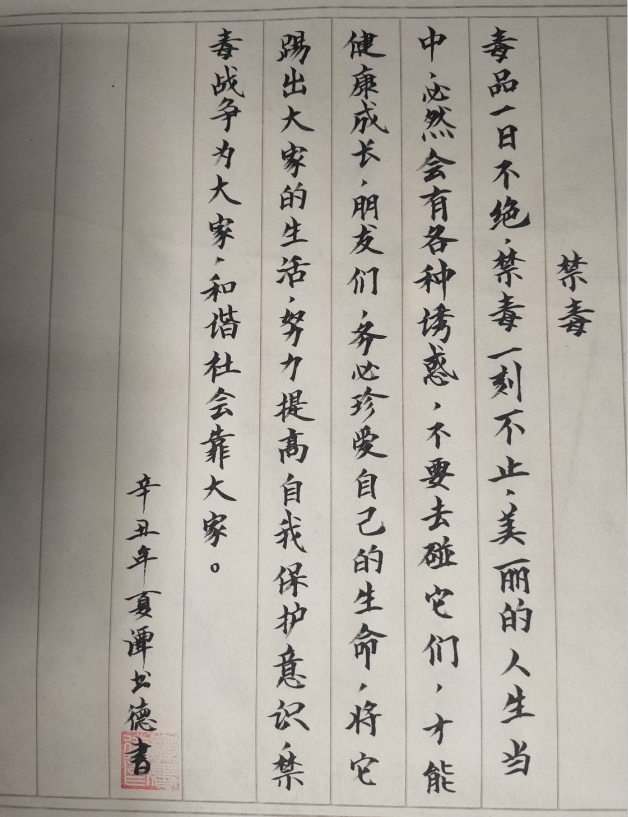 禁毒
毒品一日不绝，禁毒一刻不止，美丽的人生当
中，必然会有各种诱惑，不要去碰它们，才能
健康成长，朋友们，务必珍爱自己的生命，将它
踢出大家的生活，努力提高自我保护意识，禁
毒战争为大家，和谐社会靠大家。
辛丑年夏谭书德书